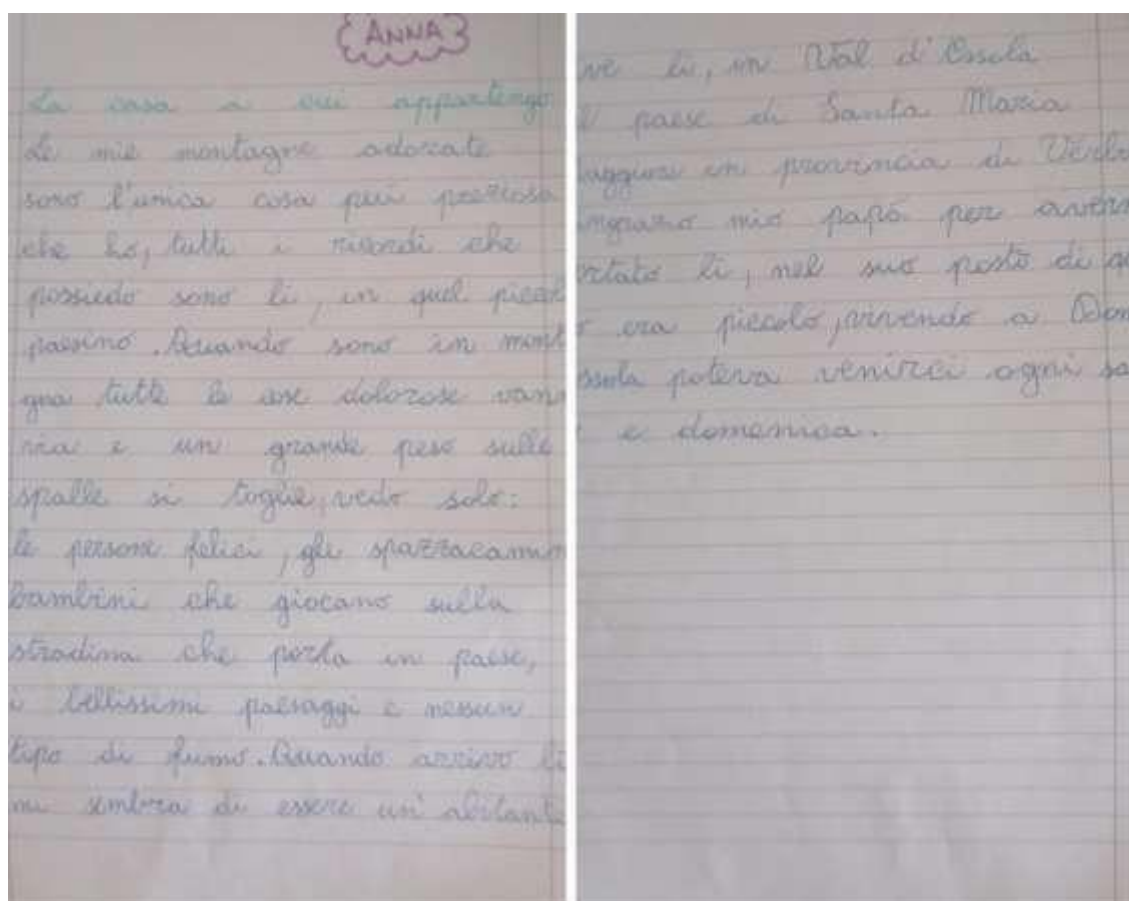 ANNA
La casa a cui appartengo
Le mie montagne adorate
sono l'unica cosa più preziosa
che ho, tutti i ricordi che
possiedo sono lì, in quel piccol
paesino. Quando sono in mont
gna tutte le cose dolorose van
via e un grande peso sulle
spalle si toglie, vedo solo:
le persone felici, gli spazzacamin
bambini che giocano sulla
stradina che porta in paese,
i bellissimi paesaggi e nessun
tipo di fumo. Quando arrivo lì
mi sembra di essere un'abitante
ve lì, in Val d'Ossola
l paese di Santa Maria
aggiore in provincia di Verb
ingrazio mio papà per aver
ortato lì, nel suo posto di
era piccolo, vivendo a Dom
ossola poteva venirci ogni sa
e domenica.